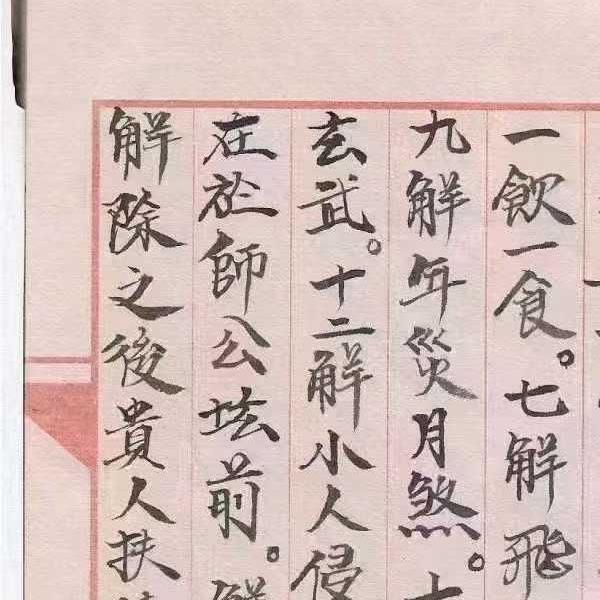 一飲一食。七解飛
九解年災月煞。十
玄武。十二解小人侵
在於師公坛前。解
解除之後貴人扶